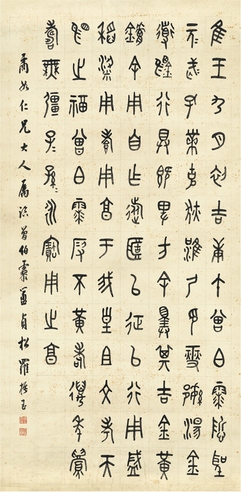 隹王九月初吉庚午曾白霥悊聖
元武孔黹克狄淮尸印燮繁湯金
道錫行具既卑方余擇其吉金黃
鑪余用自乍旅匡以征以行用盛
稻粱用孝用享于我皇文考天
賜之福曾白霥叚不黃耇萬年眉
壽無疆子孫永寶用之享
如仁兄大人屬臨曾伯霥簠貞松羅振玉